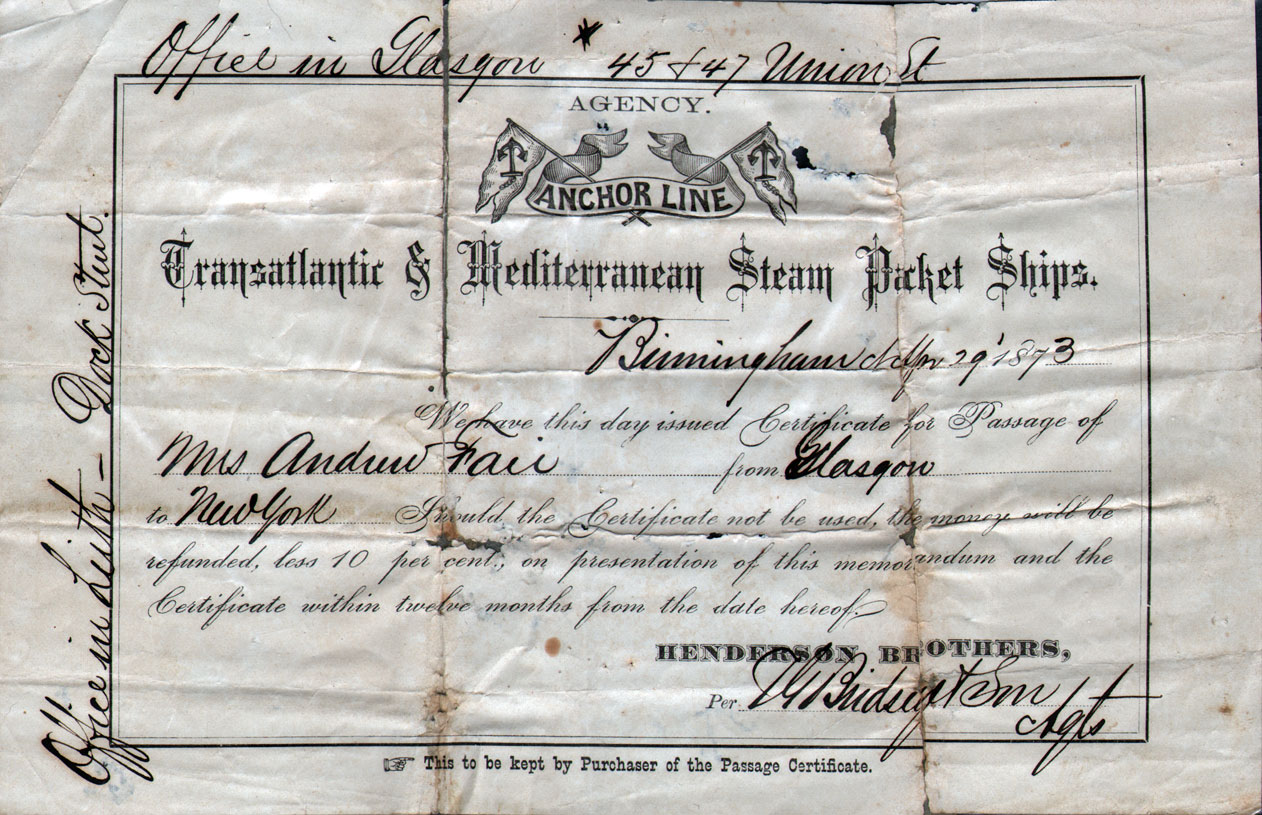 Office in Glasgow * 45 & 47 Union St
AGENCY.
ANCHOR LINE
Transatlantic & Mediterranean Steam Packet Ships.
Birmingham 29' 1873
We have this day issued Certificate for Passage of
Mrs Andrew Fair from Glasgow
to New York Should the Certificate not be used, the money will be
refunded, less 10 per cent., on presentation of this memorandum and the
Certificate within twelve months from the date hereof.
HENDERSON BROTHERS,
Per & Son
Agts
☞ This to be kept by Purchaser of the Passage Certificate.
Office in Leith – Dock Street.